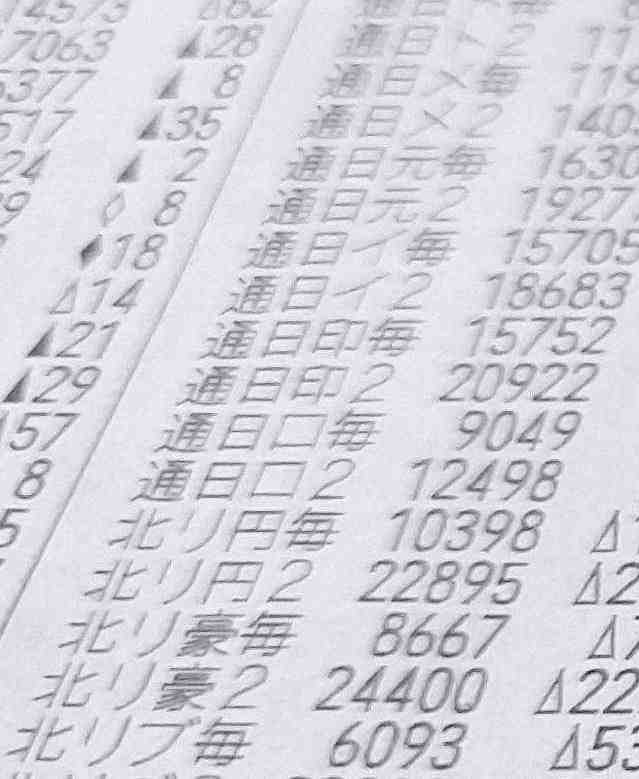 14573 △62
7063 ▲28 通日ト2 11
5377 ▲ 8 通日メ毎 119
517 ▲35 通日メ2 140
24 ▲ 2 通日元毎 1630
9 ◇ 8 通日元2 1927
◆18 通日イ毎 15705
△14 通日イ2 18683
▲21 通日印毎 15752
▲29 通日印2 20922
57 通日口毎 9049
8 通日口2 12498
5 北リ円毎 10398 △1
北リ円2 22895 △2
北リ豪毎 8667 △7
北リ豪2 24400 △22
北リブ毎 6093 △53